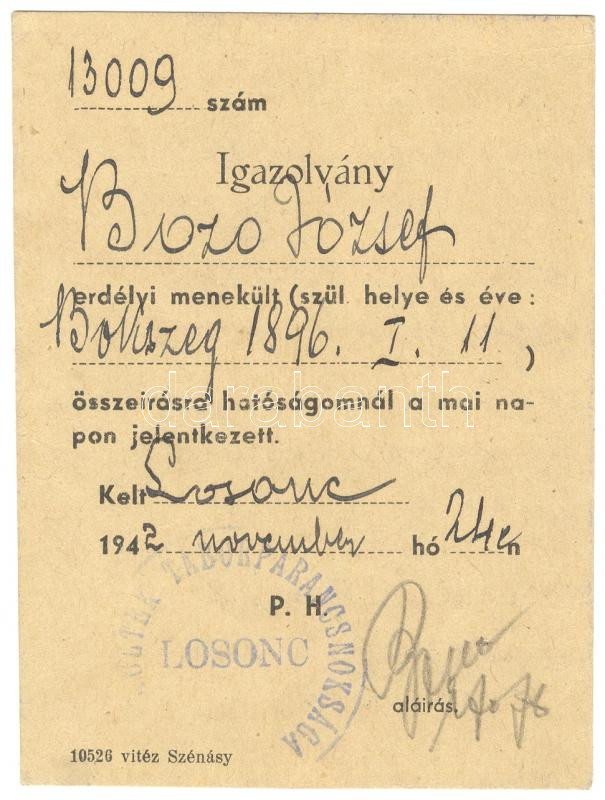 13009 szám
Igazolvány
Bozo József
erdélyi menekült (szül. helye és éve:
Bokszeg 1896. I. 11,
összeírásra hatóságomnál a mai na-
pon jelentkezett.
Kelt Losonc
1942 november hó 24én
P. H.
TÁBORPARANCSNOKSÁGA
LOSONC
aláírás.
10526 vitéz Szénásy
darabanth